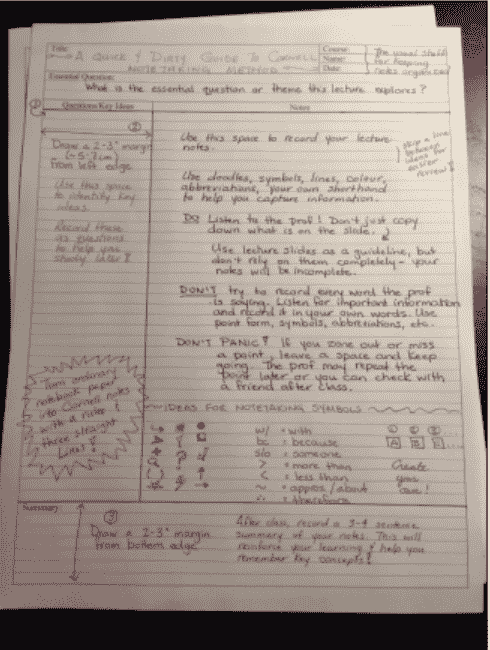 Title:
A QUICK & DIRTY GUIDE TO CORNELL
NOTETAKING METHOD
Course:
Name:
Date:
The usual stuff
for keeping
notes organized
Essential Question:
What is the essential question or theme this lecture explores?
Questions/Key Ideas
Notes
①
②
Draw a 2-3" margin
(~5-7cm)
from left edge
Use this space
to identify key
ideas.
Record these
as questions
to help you
study later!
Use this space to record your lecture
notes.
skip a line
between
ideas for
easier
review!
Use doodles, symbols, lines, colour,
abbreviations, your own shorthand
to help you capture information.
DO Listen to the prof! Don't just copy
down what is on the slide.
Use lecture slides as a guideline, but
don't rely on them completely - your
notes will be incomplete.
DON'T try to record every word the prof
is saying. Listen for important information
and record it in your own words. Use
point form, symbols, abbreviations, etc.
DON'T PANIC! If you zone out or miss
a point, leave a space and keep
going. The prof may repeat the
point later or you can check with
a friend after class.
Turn ordinary
notebook paper
into Cornell notes
with a ruler &
three straight
lines!
IDEAS FOR NOTETAKING SYMBOLS
w/ = with
bc = because
s/o = someone
> = more than
< = less than
~ = approx/about
∴ = therefore
① ② ③
A B C ...
Create
your
own!
Summary
③
Draw a 2-3" margin
from bottom edge
After class, record a 3-4 sentence
summary of your notes. This will
reinforce your learning & help you
remember key concepts!